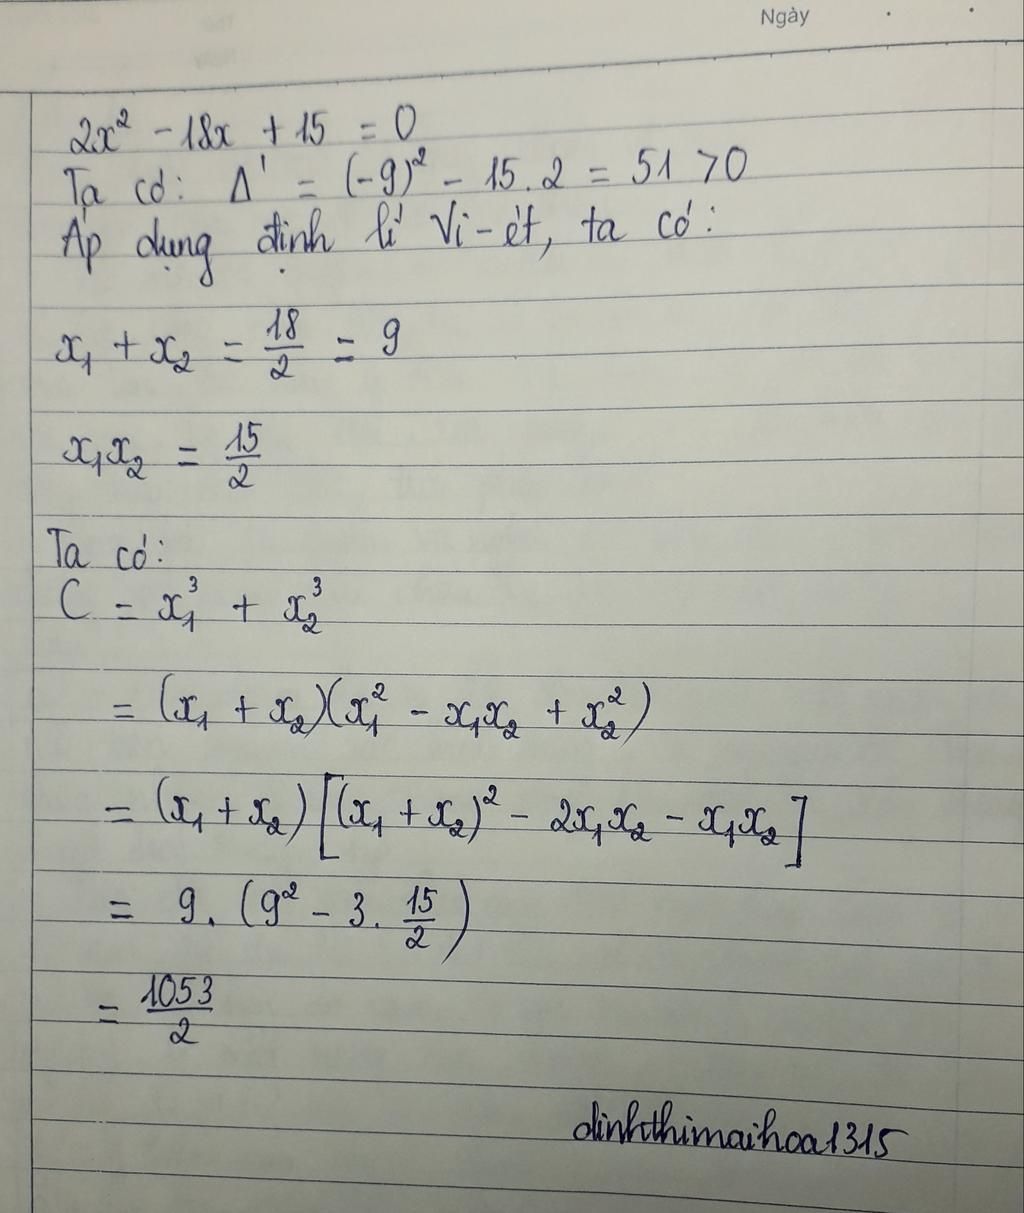 Ngày
2x² - 18x + 15 = 0
Ta có: Δ' = (-9)² - 15.2 = 51 > 0
Áp dụng định lí Vi-ét, ta có:
x₁ + x₂ = 18/2 = 9
x₁x₂ = 15/2
Ta có:
C = x₁³ + x₂³
= (x₁ + x₂)(x₁² - x₁x₂ + x₂²)
= (x₁ + x₂)[(x₁ + x₂)² - 2x₁x₂ - x₁x₂]
= 9.(9² - 3.15/2)
= 1053/2
dinhthimaihoa1315